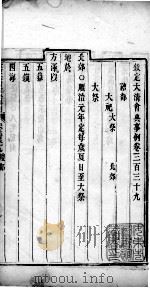 欽定大清會典事例卷三百三十九
禮部
大祀大祭 北郊
大祭
北郊○順治元年定每歲夏日至大祭
地於
方澤以
五嶽
五鎮
四海